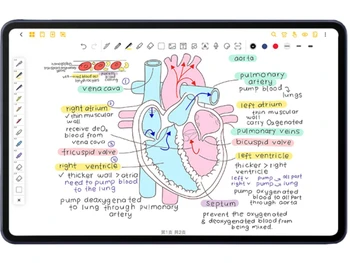 aorta
pulmonary
artery
pump blood
lungs
vena cava
right atrium
thin muscular
wall
receive deO₂
blood from
vena cava
tricuspid valve
right ventricle
✓ thicker wall >atrio
need to pump blood
to the lung
pump deoxygenated
to lung through pulmonary
artery
left atrium
✓ thin muscular
wall
carry Oxygenated
pulmonary veins
bicuspid valve
left ventricle
thicker wall >
right ventricle
left → pump → all part
right → pump → lung
pump oxygenated
blood through aorta
to all part
septum
prevent the oxygenated
& deoxygenated blood from
being mixed.